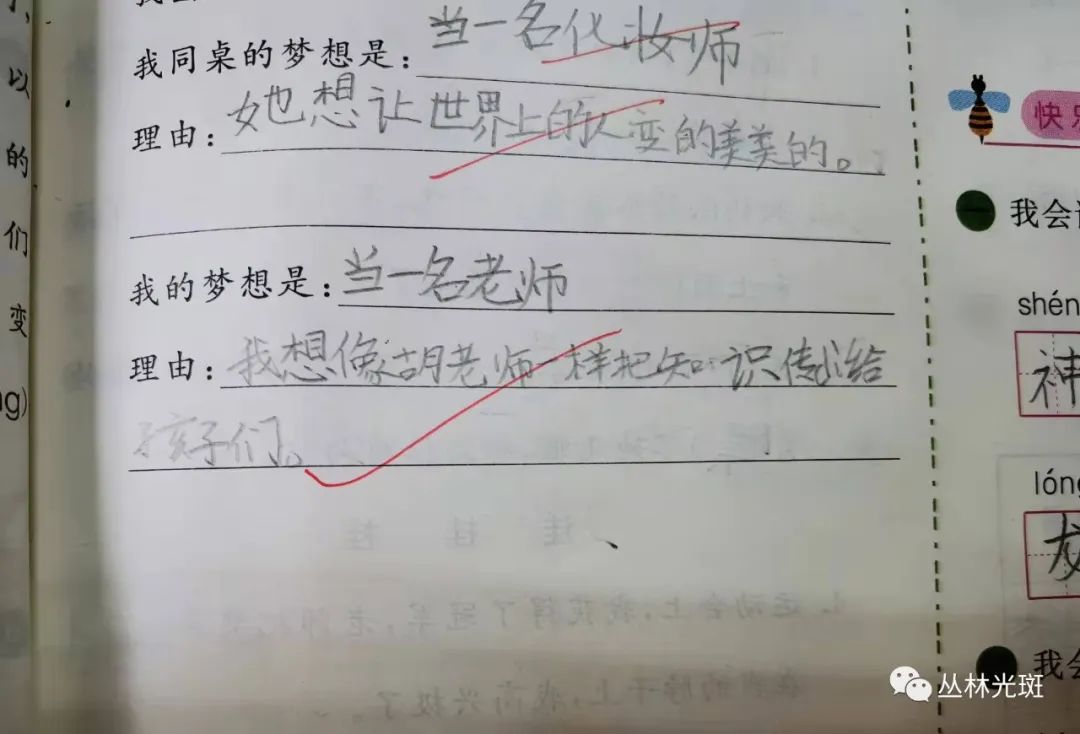 以
的
们
变
我同桌的梦想是：当一名化妆师
理由：她想让世界上的人变的美美的。
我的梦想是：当一名老师
理由：我想像胡老师一样把知识传递给
孩子们。
快乐
我会
shén
神
lóng
龙
我会
丛林光斑